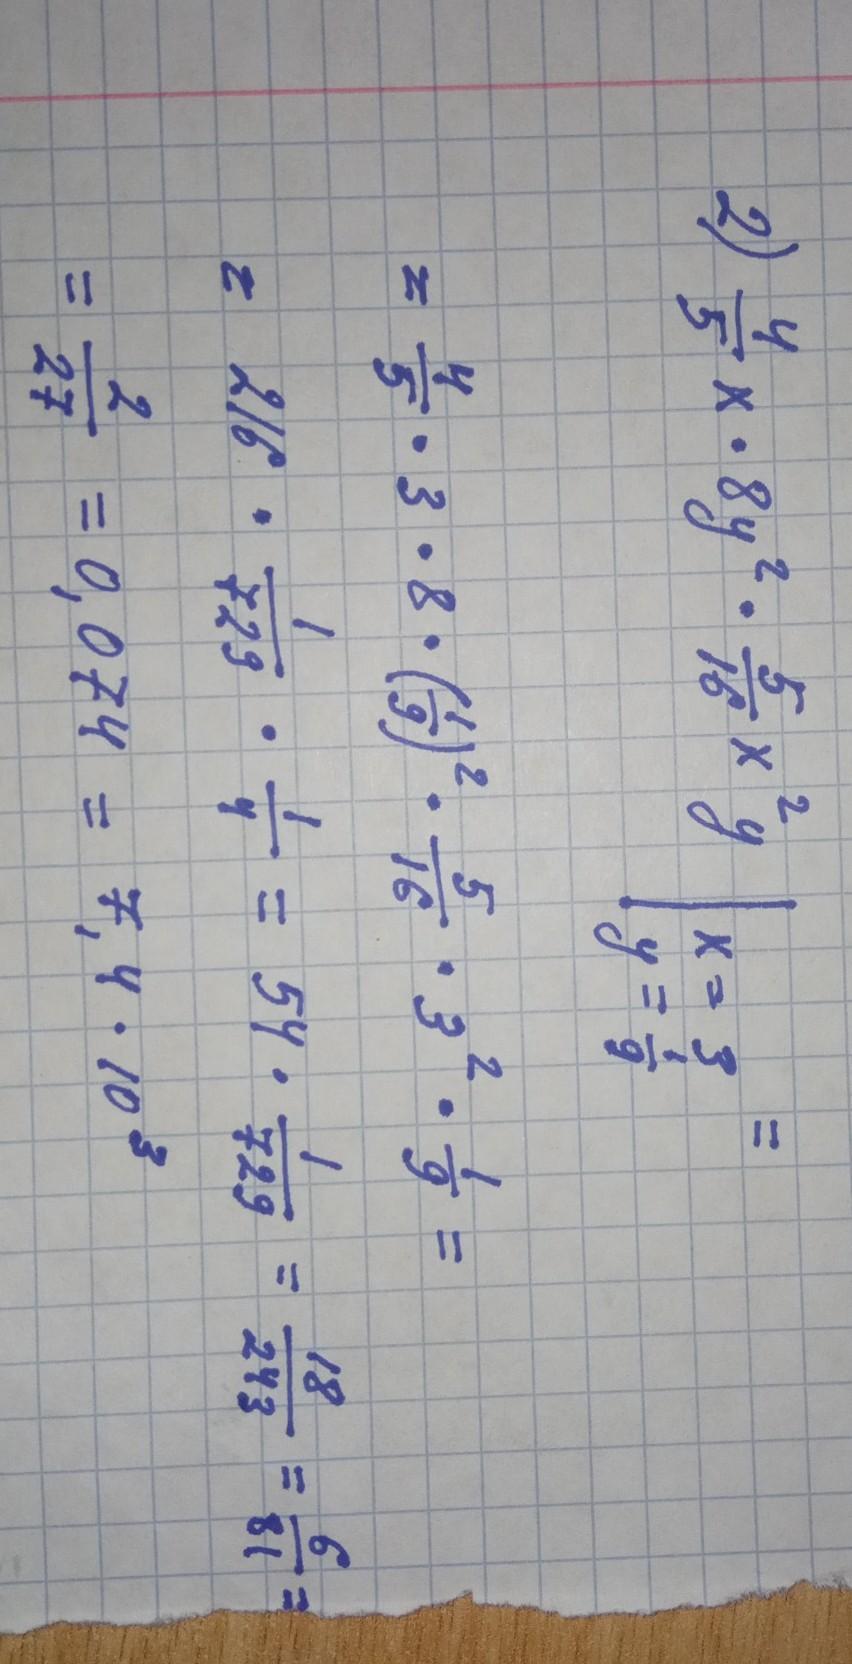 2) 4/5 x · 8y² · 5/16 x²y | x = 3 y = 1/9 =
= 4/5 · 3 · 8 · (1/9)² · 5/16 · 3² · 1/9 =
= 216 · 1/729 · 1/4 = 54 · 1/729 = 18/243 = 6/81 =
= 2/27 = 0,074 = 7,4 · 10³